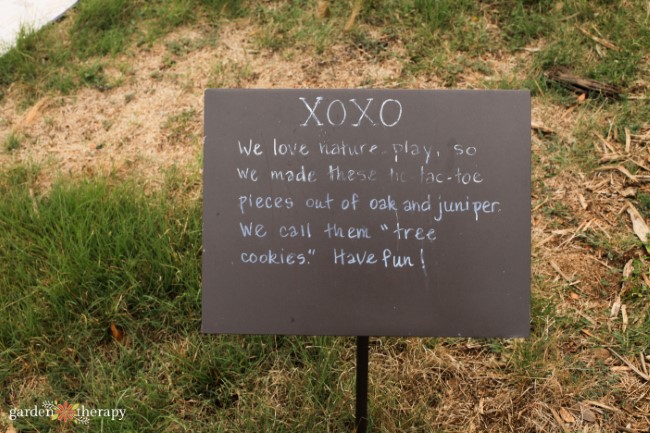 XOXO
We love nature play, so
we made these tic-tac-toe
pieces out of oak and juniper.
We call them "tree
cookies." Have fun!
garden therapy